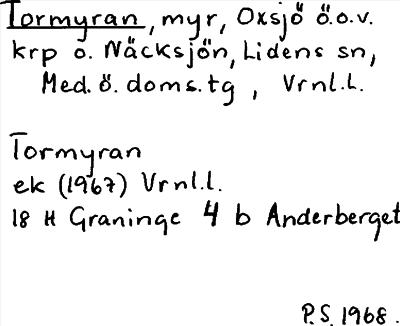 Tormyran, myr, Oxsjö ö.o.v.
krp o. Näcksjön, Lidens sn,
Med. ö. doms.tg, Vrnl.L.
Tormyran
ek (1967) Vrnl.l.
18 H Graninge 4 b Anderberget
P.S. 1968.